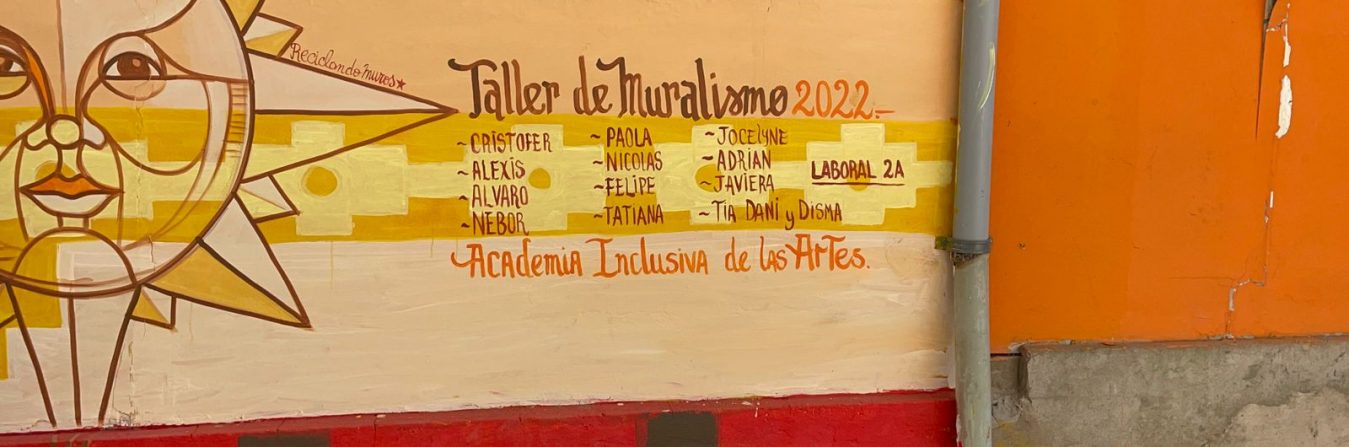 Reciclando muros
Taller de Muralismo 2022.-
~CRISTOFER
~ALEXIS
~ALVARO
~NEBOR
~PAOLA
~NICOLAS
~FELIPE
~TATIANA
~JOCELYNE
~ADRIAN
~JAVIERA
~TIA DANI y DISMA
LABORAL 2A
~ACADEMIA INCLUSIVA de las ArTes.